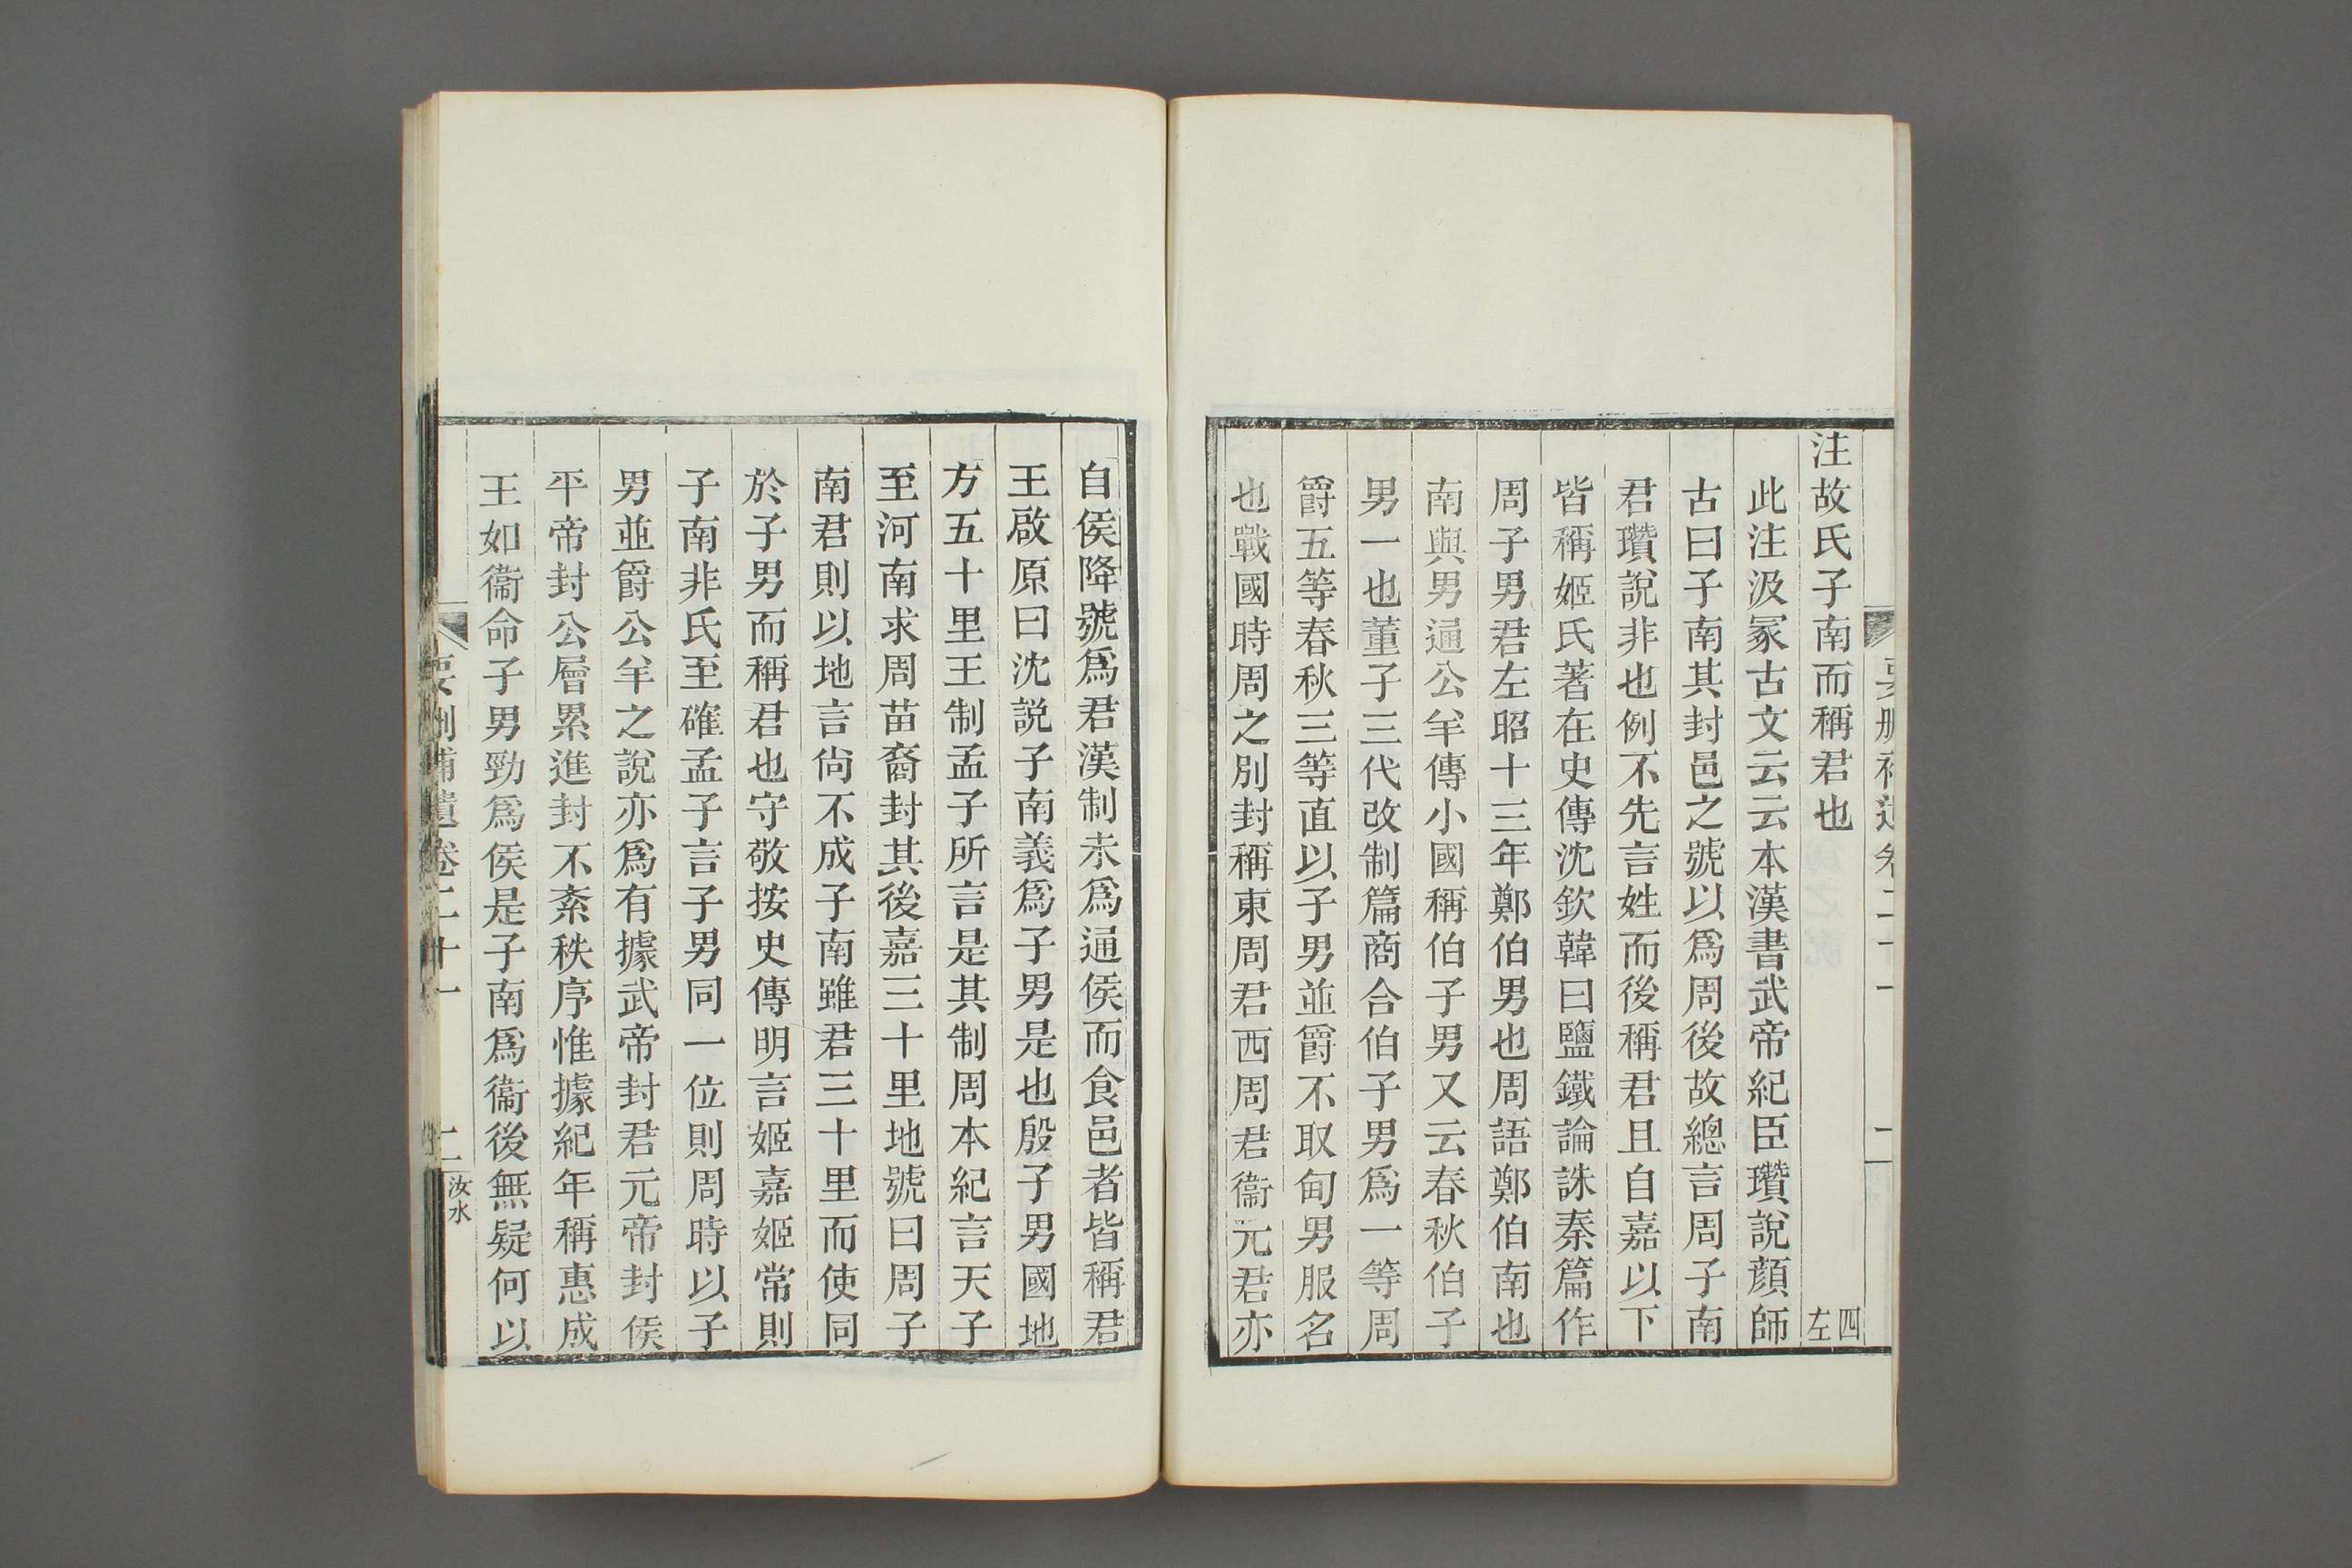 注故氏子南而稱君也 四左
此注汲冢古文云云本漢書武帝紀臣瓚說顏師
古曰子南其封邑之號以爲周後故總言周子南
君瓚說非也例不先言姓而後稱君且自嘉以下
皆稱姬氏著在史傳沈欽韓曰鹽鐵論誅秦篇作
周子男君左昭十三年鄭伯男也周語鄭伯南也
南與男通公羊傳小國稱伯子男又云春秋伯子
男一也董子三代改制篇商合伯子男爲一等周
爵五等春秋三等直以子男並爵不取甸男服名
也戰國時周之別封稱東周君西周君衞元君亦
自侯降號爲君漢制未爲通侯而食邑者皆稱君
王啟原曰沈説子南義爲子男是也殷子男國地
方五十里王制孟子所言是其制周本紀言天子
至河南求周苗裔封其後嘉三十里地號曰周子
南君則以地言尙不成子南雖君三十里而使同
於子男而稱君也守敬按史傳明言姬嘉姬常則
子南非氏至確孟子言子男同一位則周時以子
男並爵公羊之說亦爲有據武帝封君元帝封侯
平帝封公層累進封不紊秩序惟據紀年稱惠成
王如衞命子男勁爲侯是子南爲衞後無疑何以
要刪補遺卷二十一 二 汝水